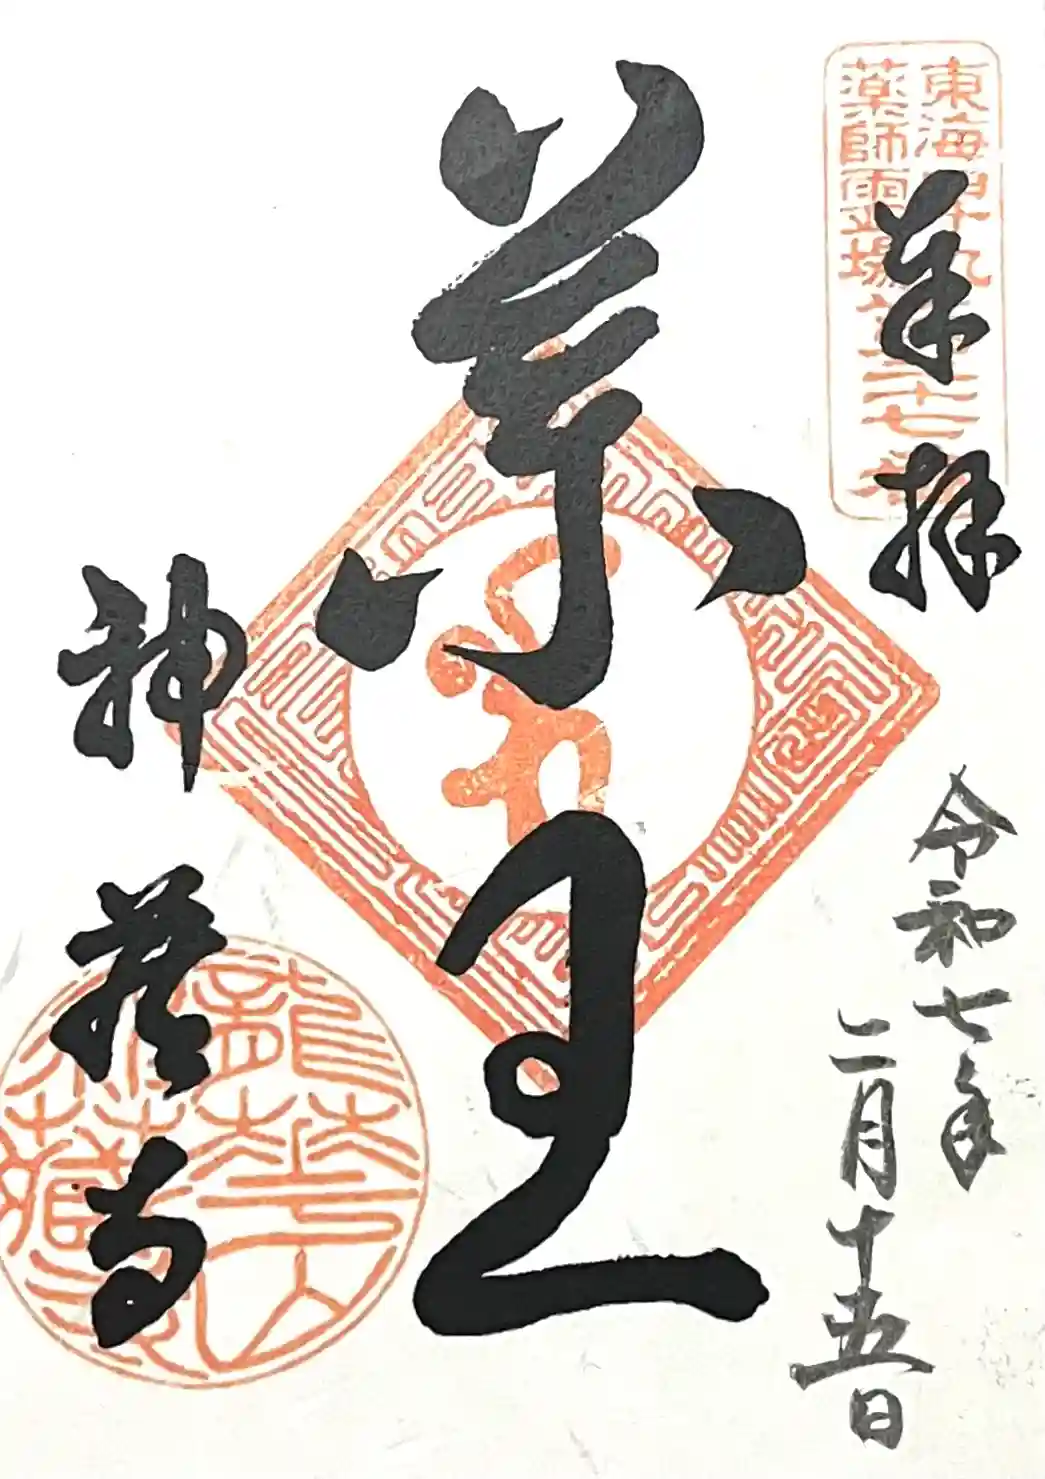 東海四十九
薬師霊場第三十七番
奉拝
令和七年
三月十五日
薬王
神蔵寺
龍華山
神蔵寺